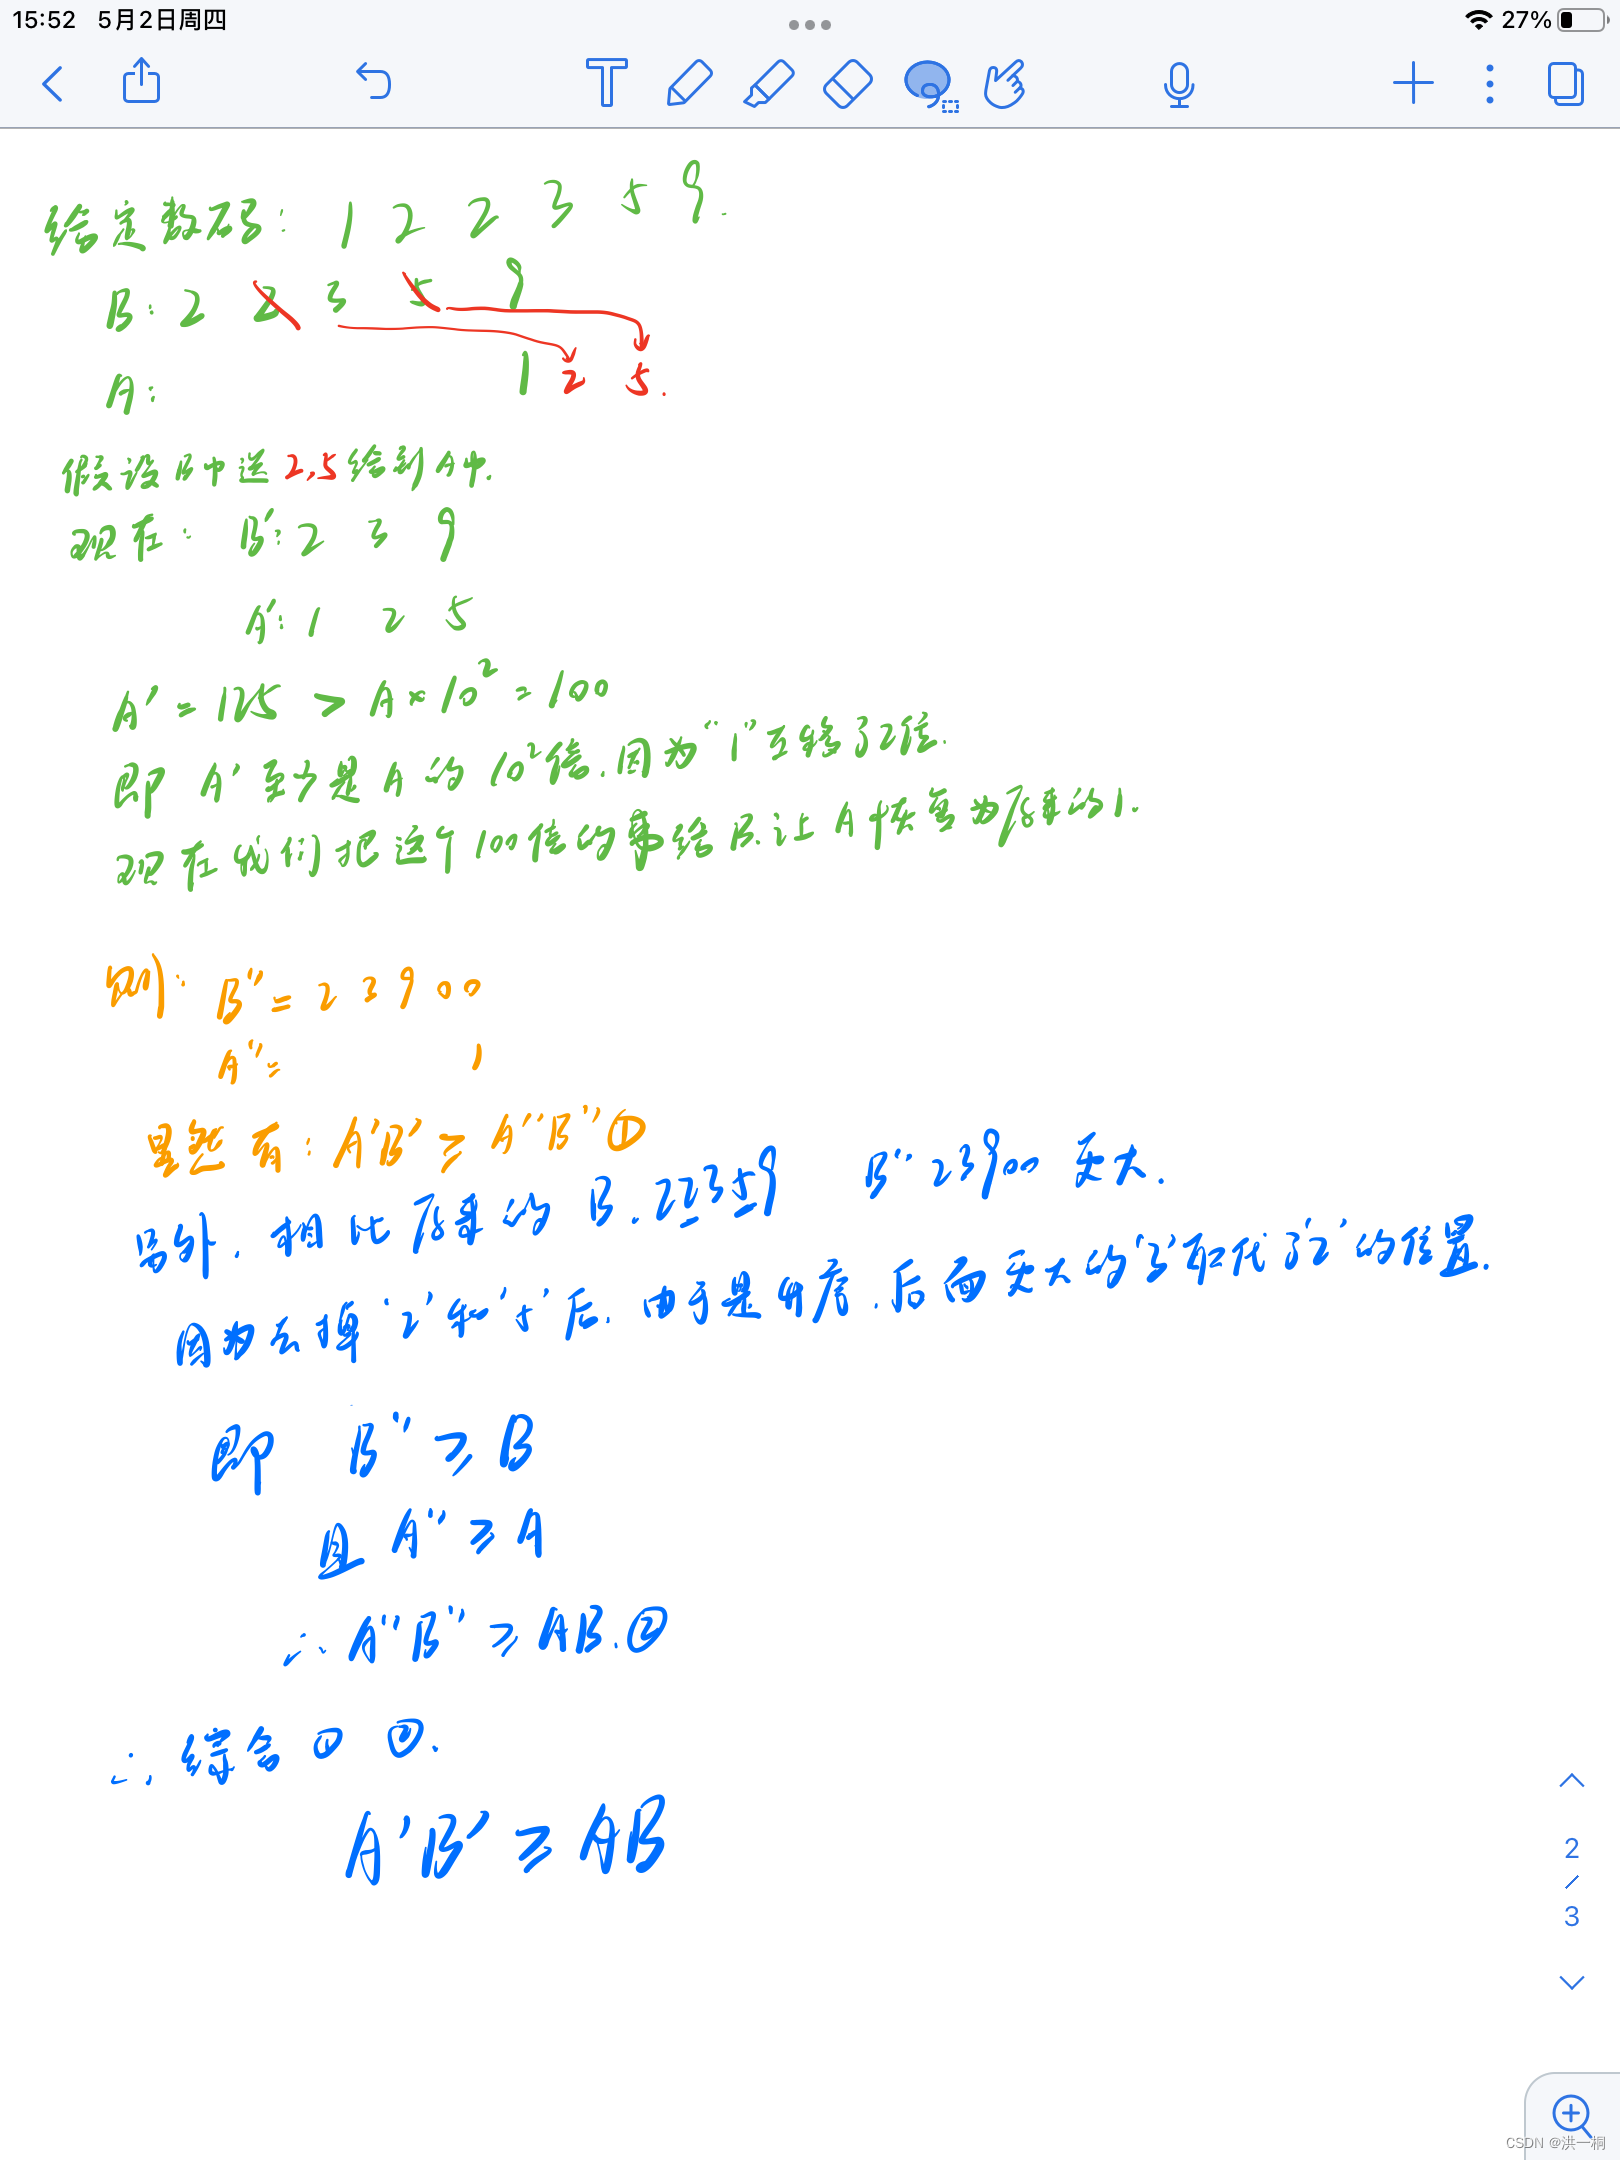 15:52 5月2日周四
27%
给定数码: 1 2 2 3 5 9.
B: 2 2 3 5 9
A: 1 2 5.
假设B中送2,5给到A中.
现在: B': 2 3 9
A': 1 2 5
A' = 125 > A×10² = 100
即 A' 至少是 A 的 10²倍.因为"1"左移了2位.
现在我们把这个100倍的乘给B.让A恢复为原来的1.
则: B'' = 2 3 9 0 0
A'' = 1
显然有: A'B' ≥ A''B'' ①
另外.相比原来的 B.22359 B''23900 更大.
因为去掉'2'和'5'后.由于是升序.后面更大的'3'取代了'2'的位置.
即 B'' ≥ B
且 A'' ≥ A
∴ A''B'' ≥ AB.②
∴ 综合① ②.
A'B' ≥ AB
2
/
3
CSDN @洪一桐